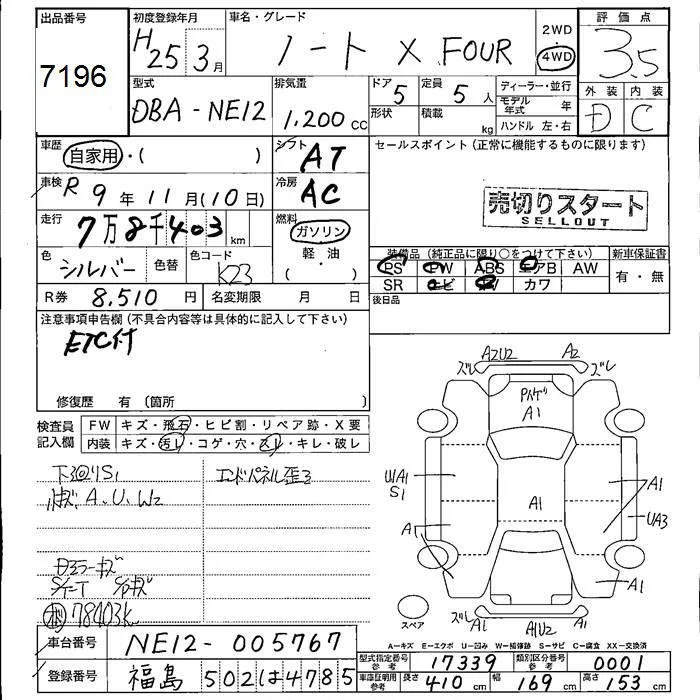 出品番号
7196
初度登録年月
H25 3月
車名・グレード
ノート X FOUR
2WD
4WD
評価点
3.5
型式
DBA-NE12
排気量
1,200 cc
ドア
5
形状
定員
5人
積載
kg
ディーラー・並行
モデル年式 年
ハンドル 左・右
外装 内装
D C
車歴
自家用・( )
シフト
AT
車検
R 9年11月(10日)
冷房
AC
走行
7万8千403 km
燃料
ガソリン
軽・油
( )
色
シルバー
色替
色コード
K23
R券 8,510 円
名変期限 月 日
セールスポイント(正常に機能するものに限ります)
売切りスタート
SELLOUT
装備品(純正品に限り○をつけて下さい)
新車保証書
PS PW ABS エアB AW
有・無
SR ナビ TV カワ
後日品
注意事項申告欄(不具合内容等は具体的に記入して下さい)
ETC付
修復歴 有(箇所 )
検査員記入欄
FW キズ・飛石・ヒビ割・リペア跡・X要
内装 キズ・汚レ・コゲ・穴・スレ・キレ・破レ
下廻りS1
小キズ、A、U、W2
エンドパネル歪ミ
78403K
ズレ A2U2 A2 ズレ
A1
UA1
S1
A1
A1
A1
UA3
A1
スペア
ズレ A1 A1U2 A1
A=キズ E=エクボ U=凹み W=補修跡 S=サビ C=腐食 XX=交換済
車台番号
NE12-005767
登録番号
福島 502 は 4785
型式指定番号 参考
17339
類別区分番号 参考
0001
車庫証明用 参考
長さ 410 cm 幅 169 cm 高さ 153 cm